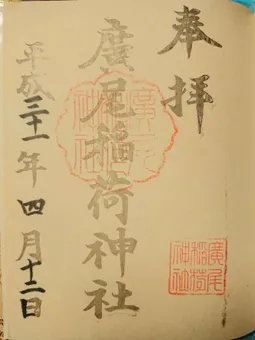 奉拝
廣尾稲荷神社
平成三十一年四月十二日
廣尾稲荷神社
廣尾稲荷神社